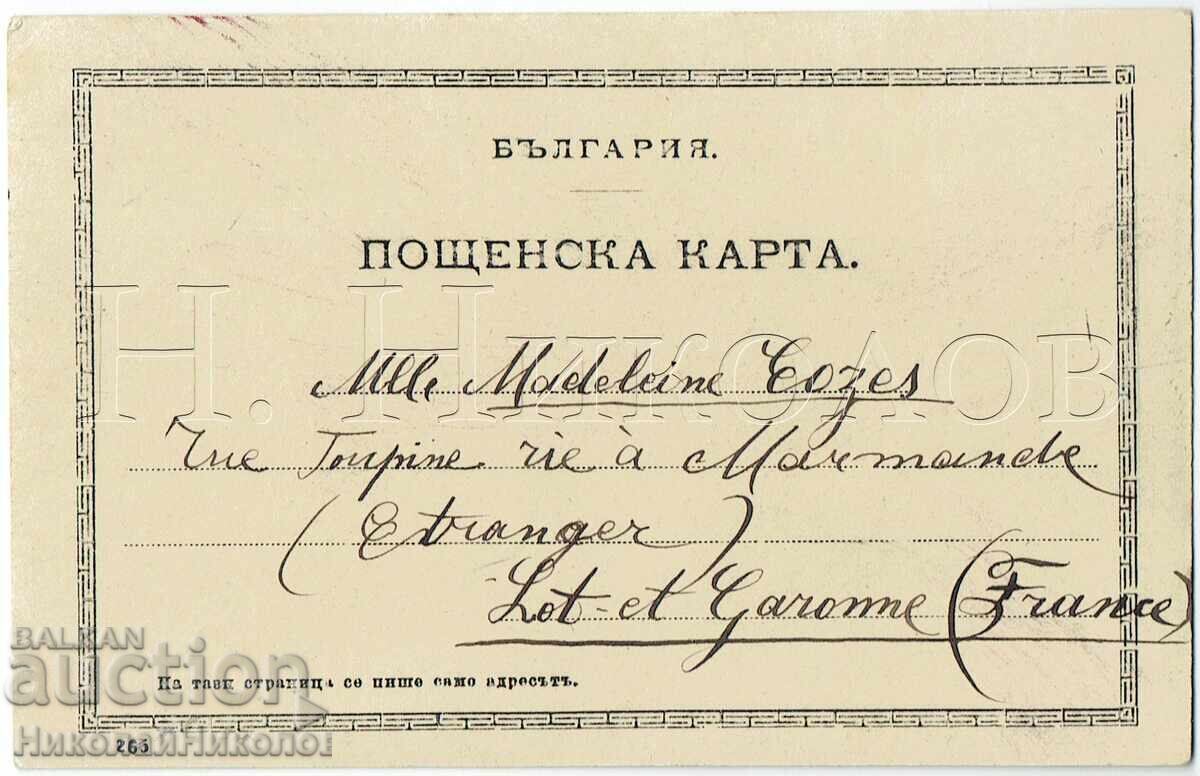 БЪЛГАРИЯ.
ПОЩЕНСКА КАРТА.
Н. Николов
Mlle Madeleine Cozes
rue Toupine rie à Marmande
(Etranger)
Lot-et Garonne (France)
BALKAN
auction
На тази страница се пише само адресътъ.
НиколайНиколов
265